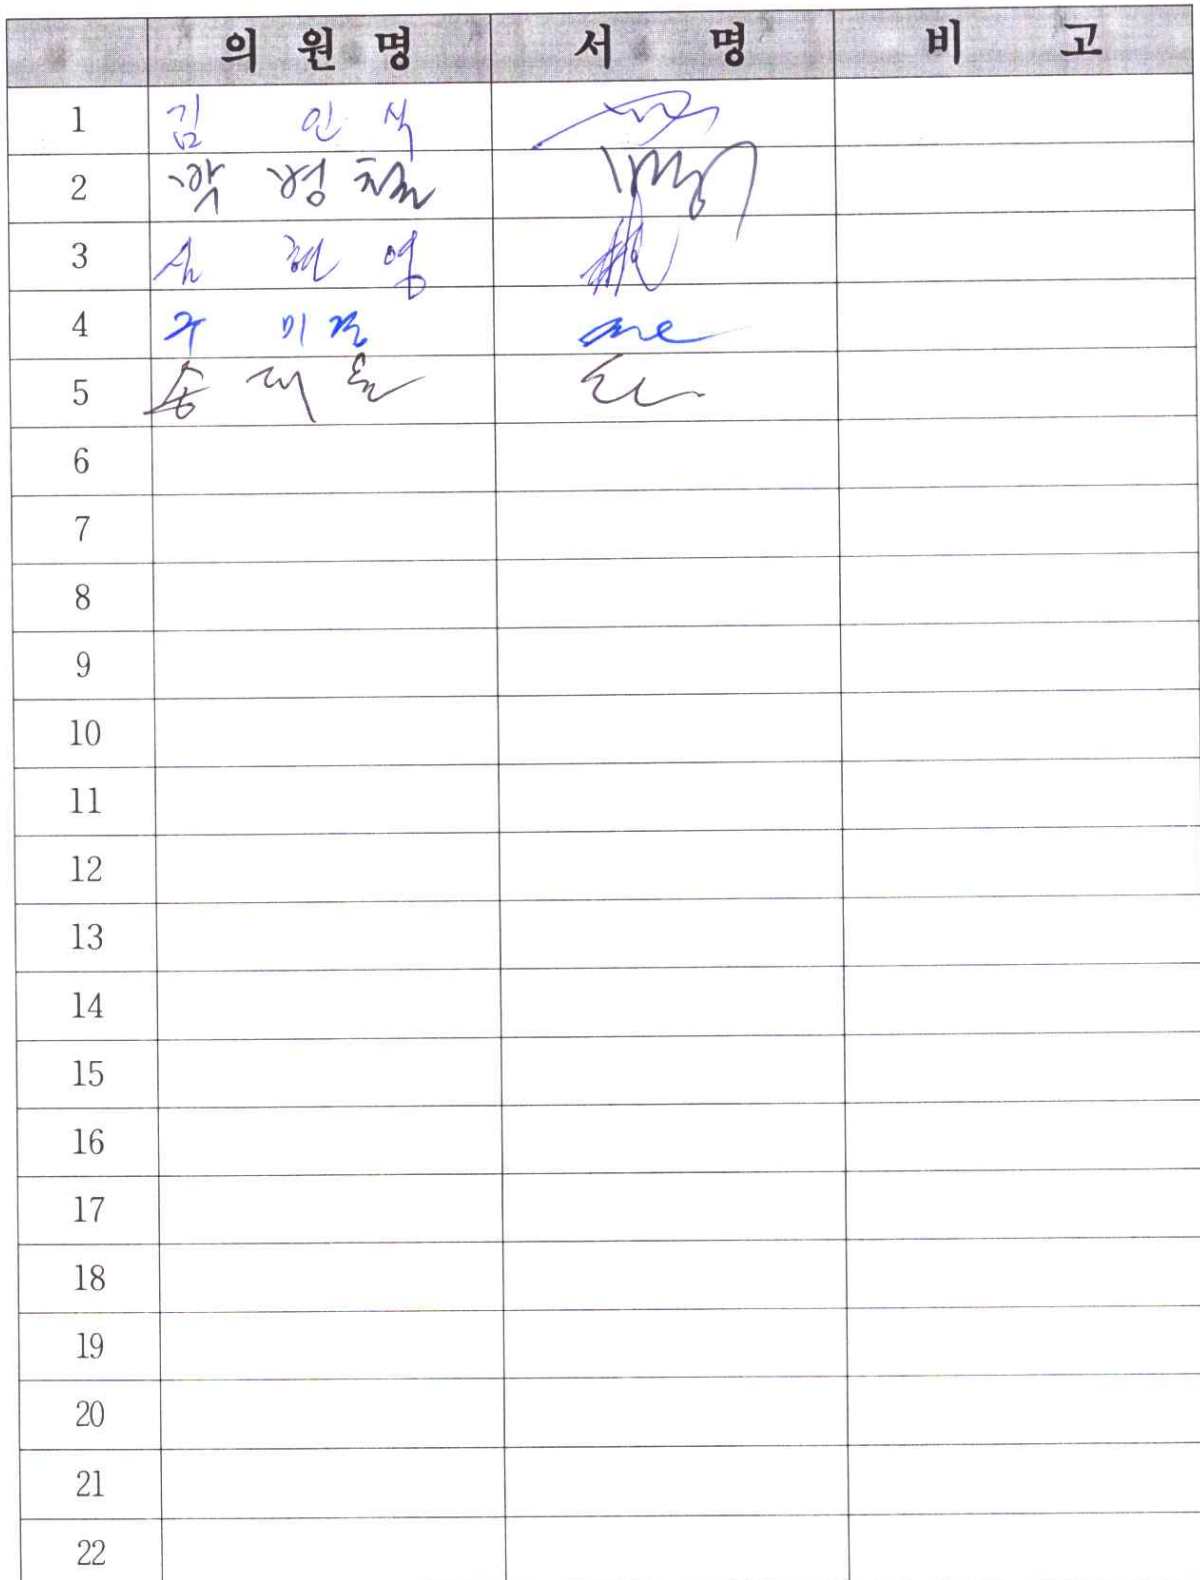 의 원 명 서 명 비 고
1 김 인 식
2
3 심 현 영
4 구 미 경
5 송 대 윤
6
7
8
9
10
11
12
13
14
15
16
17
18
19
20
21
22